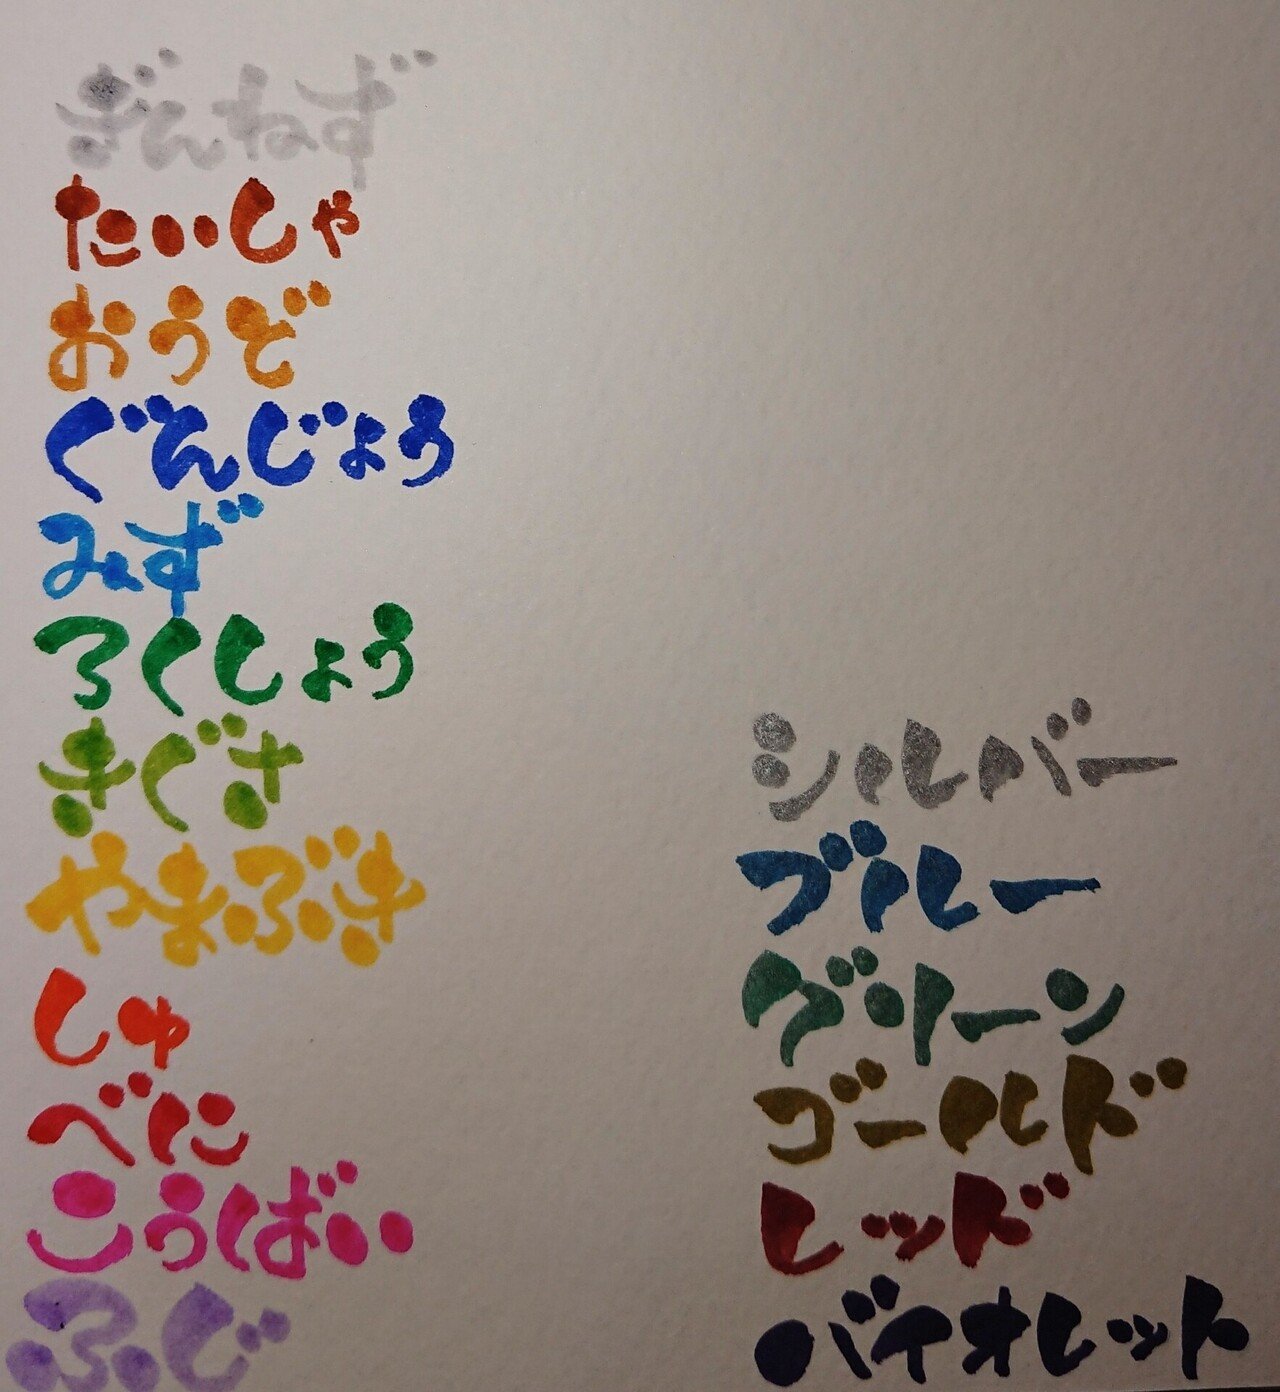 ぎんねず
たいしゃ
おうど
ぐんじょう
みず
ろくしょう
まぐさ
やまぶき
しゅ
べに
こうばい
ふじ
シルバー
ブルー
グリーン
ゴールド
レッド
バイオレット